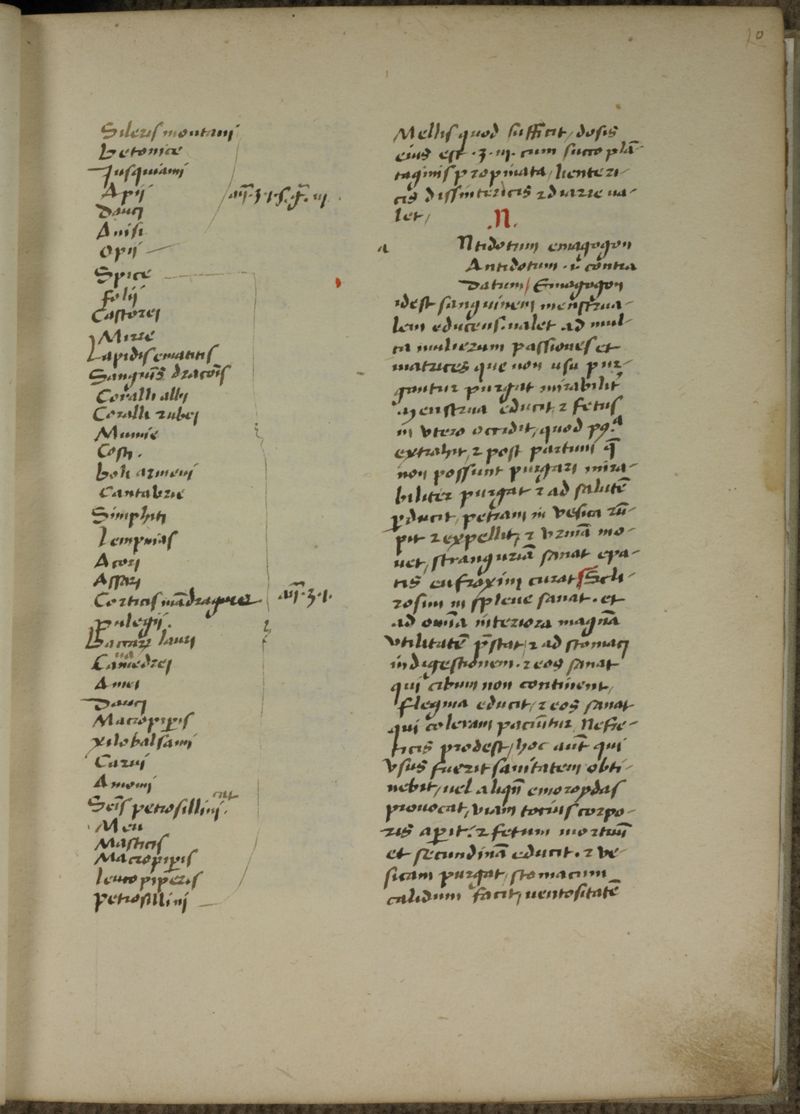 10
Sileris montani
betonice
Jusquiami
Apij
Dauci
Anisi
opij
an̄ ʒ.1.s. g̃. iij.
Spice
folij
Castorei
Mirre
Lapidis ematitis
Sanguīs draco᷒is
Coralli albi
Coralli rubei
Mumie
Costi.
boli armeni
Cantabrie
Simphiti
lempnias
Acori
Assari
Corticis mādragore
an̄.ʒ.1.
pulegij.
Baccarū lauri
Camedrei
Amei
Dauci
Macropiꝑis
xilobalsami
Carui
Amomi
Seīs petrosillini.
Meu
Masticis
Macropiꝑis
leuco piperis
petrosillini
Mellis quod sufficit, dosis
eius est .ʒ.iij. cum succo plā-
taginis propinata, lienteri-
cis dissintericis ⁊ diarre ua-
let,
N.
a
Ntidotum emagogon
Antidotum .i. contra
datum, Emagogon
idest sanguinem menstrua-
lem educens. ualet ad mul-
ta mulierum passiones et
matrices que non usu pur-
gantur purgat mirabilit᷑
menstrua educit, ⁊ fetus
in vtero occidit, quod
extrahit, ⁊ post partum q̄
non possunt purgari mira-
biliter purgat ⁊ ad salutē
ꝑducit, petram in vesica rū-
pit ⁊ expellit, ⁊ vrinā mo-
uet, stranguriā sanat epa-
tis enfraxim curat Scli-
rosim in splene sanat. et
ad omīa interiora magnā
vtilitatē p̄stat, ⁊ ad stomaci
indigestionem. ⁊ eos sanat
qui cibum non continent,
flegma educit, ⁊ eos sanat
qui coleram paciūtur, Nefre-
ticis prodest, hoc aut̄ qui
vsus fuerit sanitatem obti-
nebit, uel aliqn̄ emoroydas
prouocat, viam totius corpo-
ris aperit. ⁊ fetum mortuū
et secundinā educit. ⁊ ve-
sicam purgat, stomacum
calidum facit, uentositatē